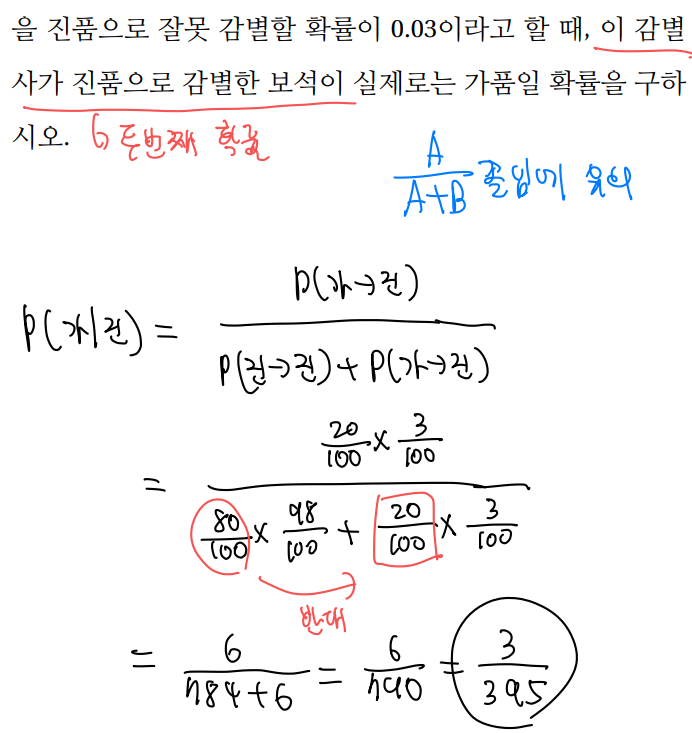 을 진품으로 잘못 감별할 확률이 0.03이라고 할 때, 이 감별
사가 진품으로 감별한 보석이 실제로는 가품일 확률을 구하
시오. 두번째 확률
A/(A+B) 꼴임에 유의
P(가|진) = P(가→진) / (P(진→진) + P(가→진))
= (20/100 × 3/100) / (80/100 × 98/100 + 20/100 × 3/100)
반대
= 6/(784+6) = 6/790 = 3/395